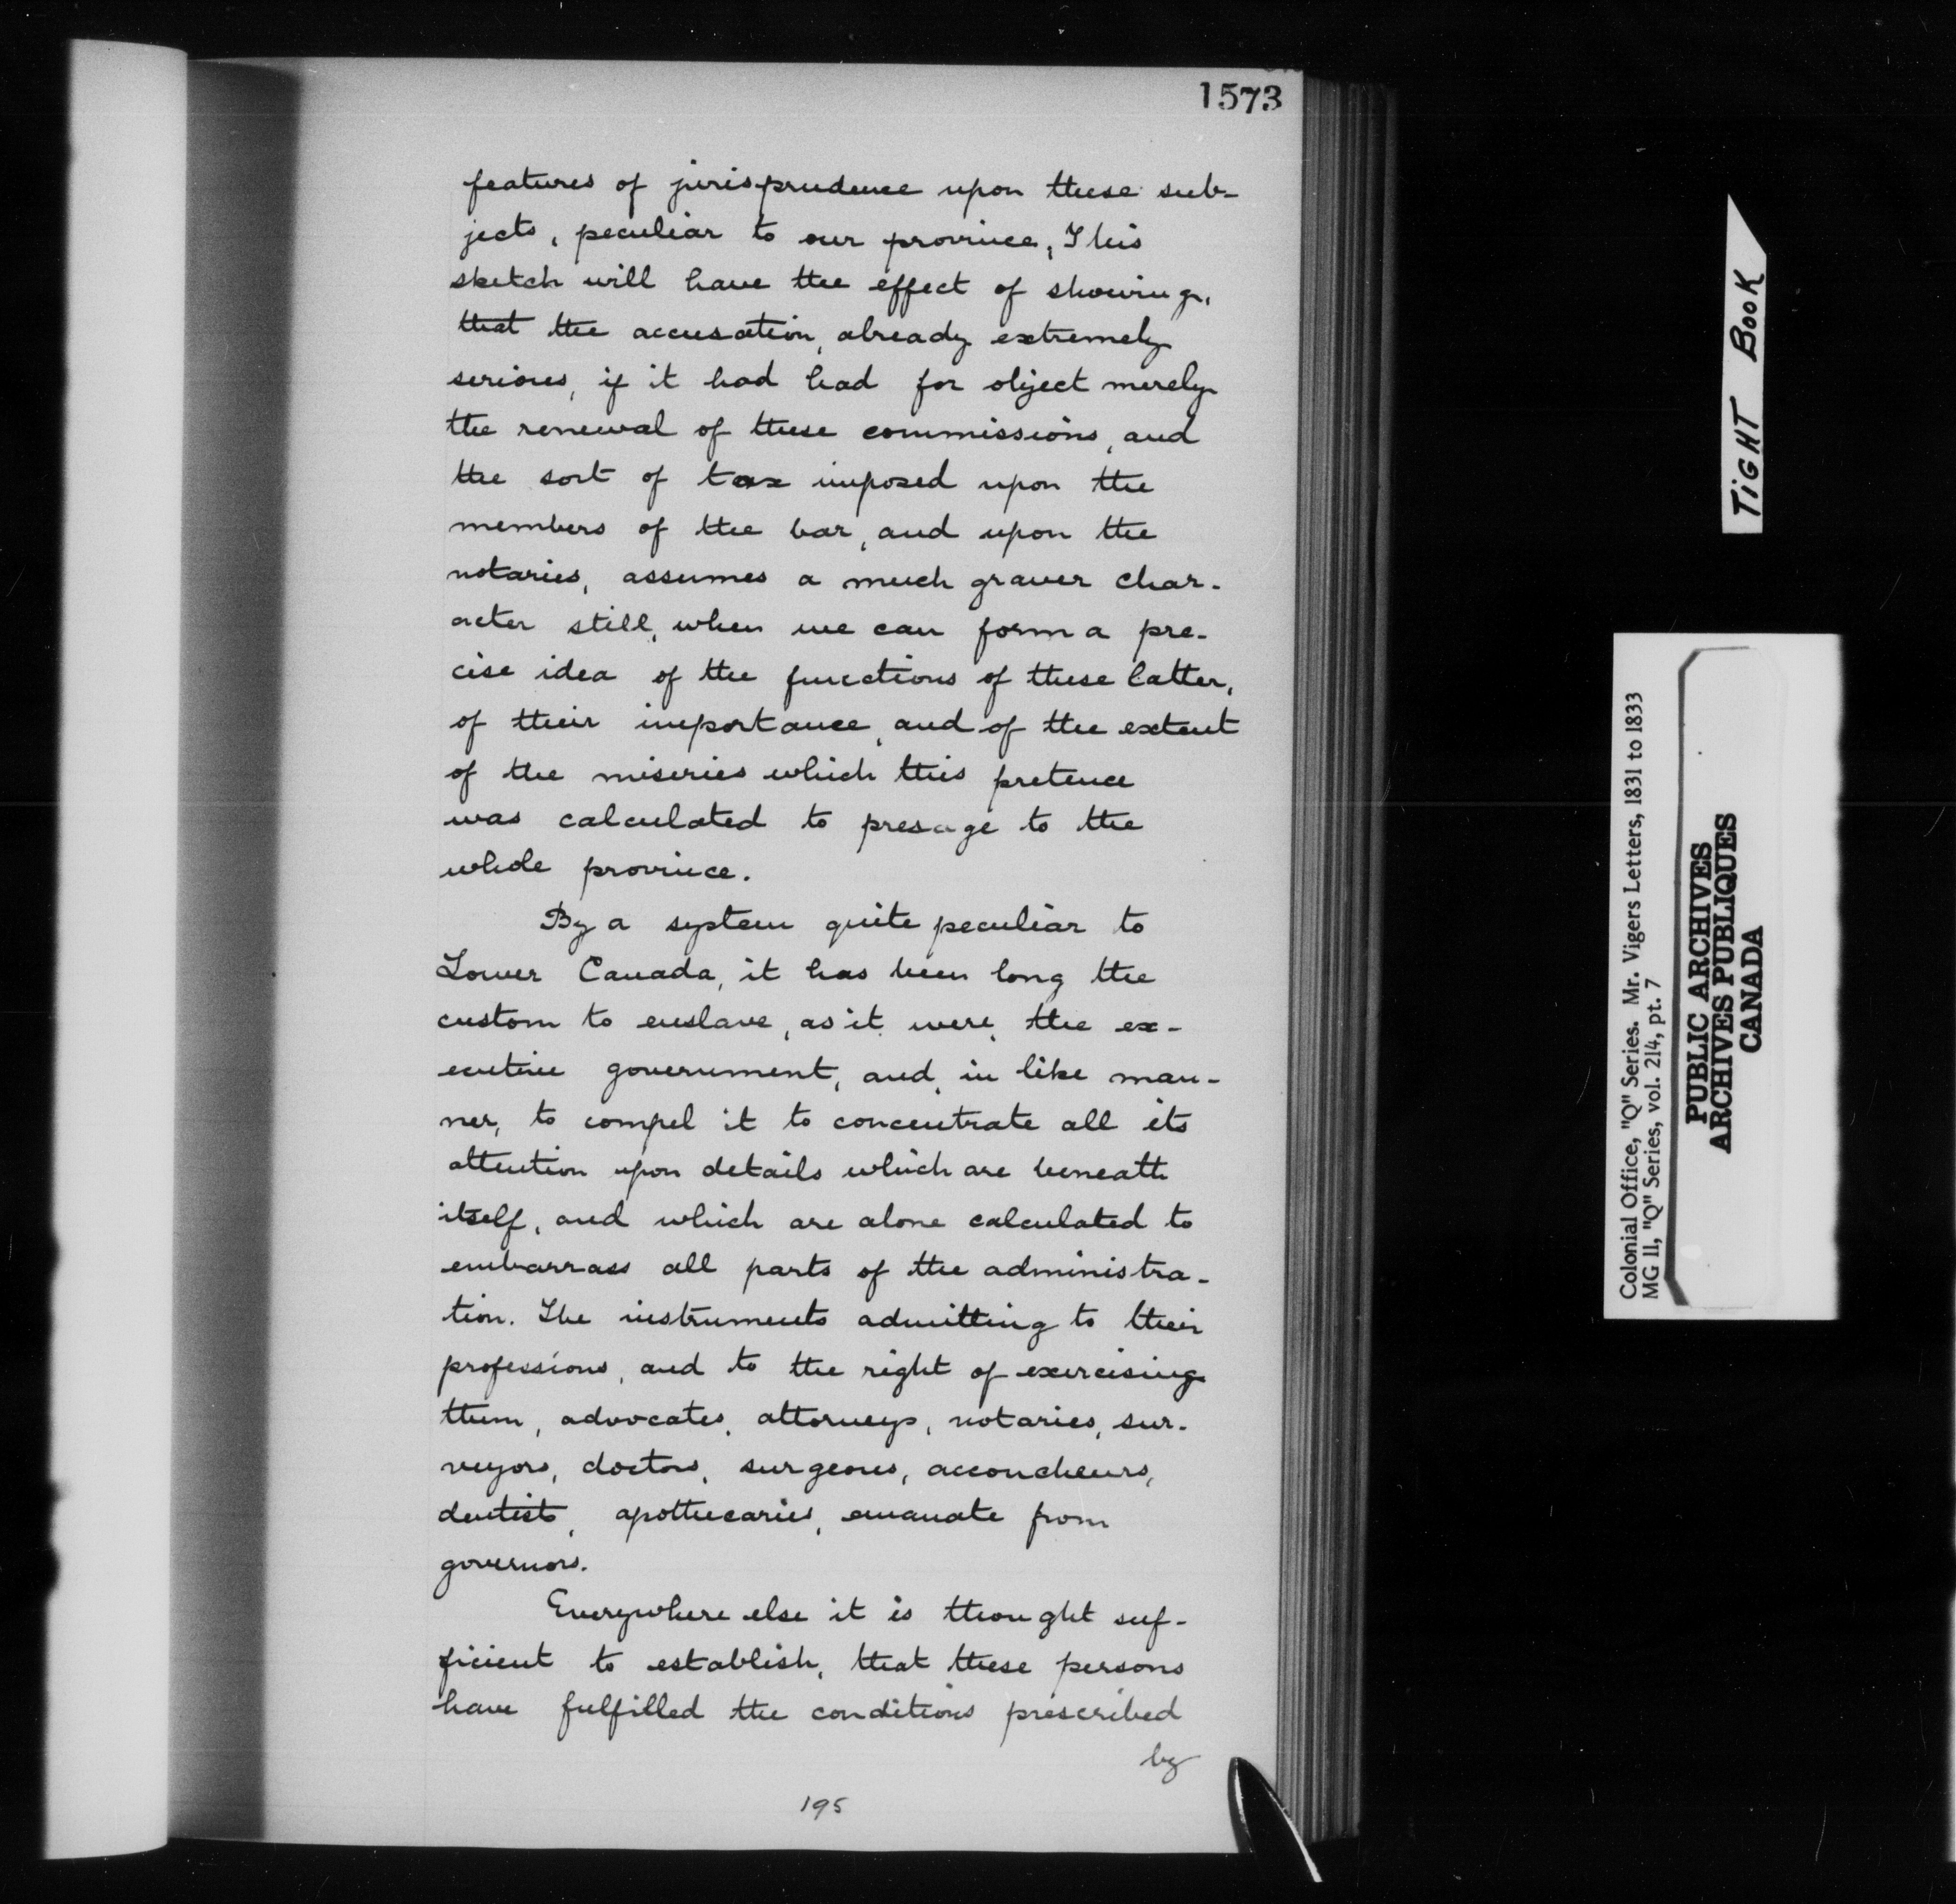 1573
features of jurisprudence upon these sub-
jects, peculiar to our province, This
sketch will have the effect of showing,
that the accusation, already extremely
serious, if it had had for object merely
the renewal of these commissions, and
the sort of tax imposed upon the
members of the bar, and upon the
notaries, assumes a much graver char-
acter still, when we can form a pre-
cise idea of the functions of these latter,
of their importance, and of the extent
of the miseries which this pretence
was calculated to presage to the
whole province.
By a system quite peculiar to
Lower Canada, it has been long the
custom to enslave, as it were, the ex-
ecutive government, and, in like man-
ner, to compel it to concentrate all its
attention upon details which are beneath
itself, and which are alone calculated to
embarrass all parts of the administra-
tion. The instruments admitting to their
professions, and to the right of exercising
them, advocates, attorneys, notaries, sur-
veyors, doctors, surgeons, accoucheurs,
dentists, apothecaries, emanate from
governors.
Everywhere else it is thought suf-
ficient to establish, that these persons
have fulfilled the conditions prescribed
by
195
TIGHT BOOK
Colonial Office, "Q" Series. Mr. Vigers Letters, 1831 to 1833
MG 11, "Q" Series, vol. 214, pt. 7
PUBLIC ARCHIVES
ARCHIVES PUBLIQUES
CANADA